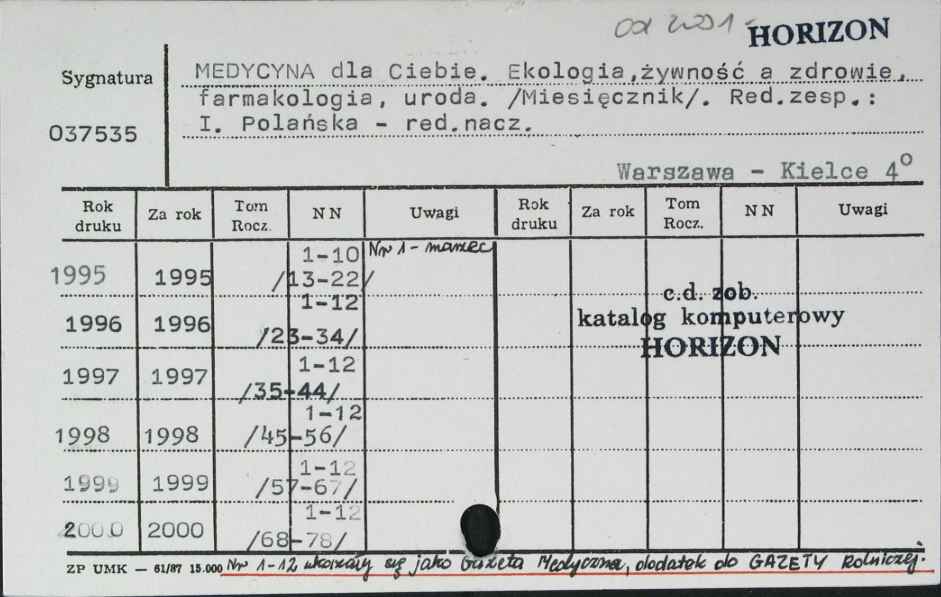 od 2001 - HORIZON
Sygnatura
037535
MEDYCYNA dla Ciebie. Ekologia,żywność a zdrowie,
farmakologia, uroda. /Miesięcznik/. Red.zesp.:
I. Polańska - red.nacz.
Warszawa - Kielce 4°
Rok druku Za rok Tom Rocz. NN Uwagi Rok druku Za rok Tom Rocz. NN Uwagi
1995 1995 1-10 /13-22/ Nr 1 - marzec
1996 1996 1-12 /23-34/
1997 1997 1-12 /35-44/
1998 1998 1-12 /45-56/
1999 1999 1-12 /57-67/
2000 2000 1-12 /68-78/
c.d. zob.
katalog komputerowy
HORIZON
ZP UMK — 61/87 15.000 Nr 1-12 ukazały się jako Gazeta Medyczna, dodatek do GAZETY Rolniczej.